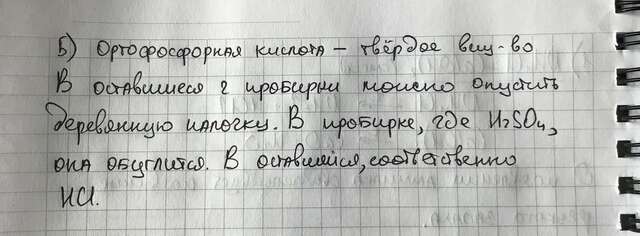 Б) Ортофосфорная кислота – твёрдое вещ-во
В оставшиеся 2 пробирки можно опустить
деревянную палочку. В пробирке, где H₂SO₄,
она обуглится. В оставшейся, соответственно
HCl.